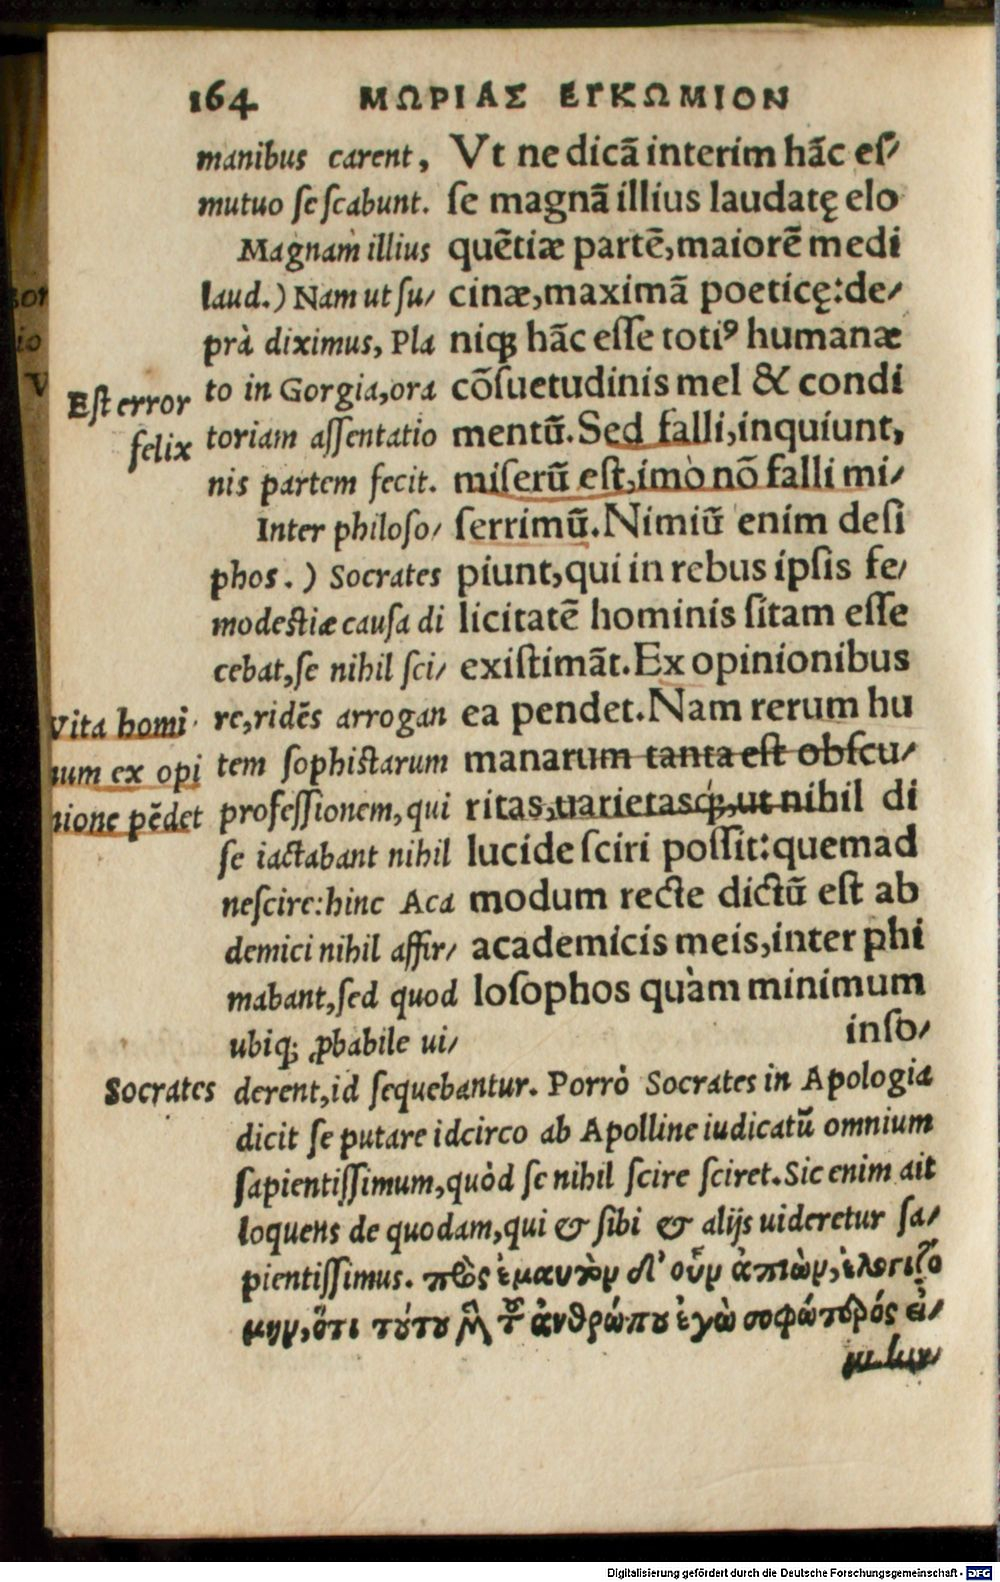 164 ΜΩΡΙΑΣ ΕΓΚΩΜΙΟΝ
Vt ne dicã interim hãc eſ/
ſe magnã illius laudatę elo
quẽtiæ partẽ, maiorẽ medi
cinæ, maximã poeticę: de/
niq; hãc eſſe totiꝰ humanæ
cõſuetudinis mel & condi
mentũ. Sed falli, inquiunt,
miſerũ eſt, imò nõ falli mi/
ſerrimũ. Nimiũ enim deſi
piunt, qui in rebus ipſis fe/
licitatẽ hominis ſitam eſſe
exiſtimãt. Ex opinionibus
ea pendet. Nam rerum hu
manarum tanta eſt obſcu/
ritas, uarietasq;, ut nihil di
lucide ſciri poſſit: quemad
modum recte dictũ eſt ab
academicis meis, inter phi
loſophos quàm minimum
inſo/
manibus carent,
mutuo ſe ſcabunt.
Magnam illius
laud.) Nam ut ſu/
prà diximus, Pla
to in Gorgia, ora
toriam aſſentatio
nis partem fecit.
Inter philoſo/
phos.) Socrates
modeſtiæ cauſa di
cebat, ſe nihil ſci/
re, ridẽs arrogan
tem ſophiſtarum
profeſſionem, qui
ſe iactabant nihil
neſcire: hinc Aca
demici nihil affir/
mabant, ſed quod
ubiq; ꝓbabile ui/
derent, id ſequebantur. Porrò Socrates in Apologia
dicit ſe putare idcirco ab Apolline iudicatũ omnium
ſapientiſſimum, quòd ſe nihil ſcire ſciret. Sic enim ait
loquens de quodam, qui & ſibi & alijs uideretur ſa/
pientiſſimus. πρὸς ἐμαυτὸν δ' οὖν ἀπιὼν, ἐλογιζό
μην, ὅτι τούτου μὲν τοῦ ἀνθρώπου ἐγὼ σοφώτερός εἰ/
Eſt error
felix
Vita homi
num ex opi
nione pẽdet
Socrates
Digitalisierung gefördert durch die Deutsche Forschungsgemeinschaft - DFG